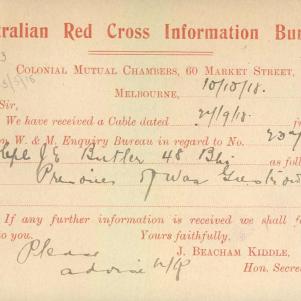 tralian Red Cross Information Bu
3
Colonial Mutual Chambers, 60 Market Street,
Melbourne, 10/10/18.
Sir,
We have received a Cable dated 27/9/18. fr
n W. & M. Enquiry Bureau in regard to No. 237
Cpl J E Butler 48 Bn, as follo
Prisoner of War
If any further information is received we shall f
to you. Yours faithfully,
Please J. Beacham Kiddle,
advise Hon. Secre